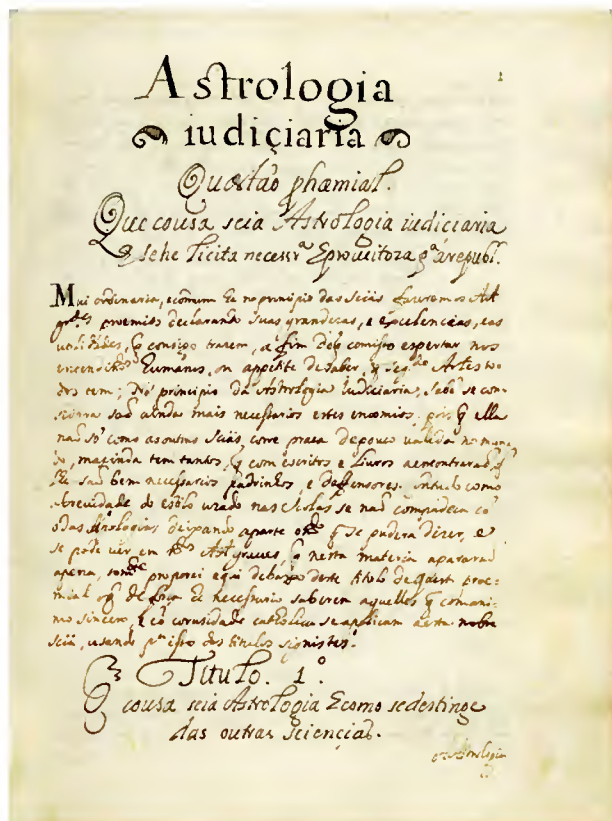 1
Astrologia
iudiçiaria
Quæstão phæmial.
Que cousa seia Astrologia iudiciaria
se he licita necessr.ª E proueitoza p.ª á republ.
Mui ordinario, e cõmum he no principio das sciãs fazeremos Aut
proemios declarando suas grandezas, e excelencias, e as
utilidades, q̃ consigo trazem, a fim de q̃ comisso espertar nos
entendim.tos humanos, ou appetite de saber, q̃
dos tem; No principio da Astrologia Iudiciaria, se con-
sidera são ainda mais necessarios estes encomios. pois q̃ ella
não só como as outras sciãs, corre praça de pouco ualida no mun-
do, mas inda tem tantos, q̃ com escritos e liuros a encontrarao, q̃
lhe são bem necessarios padrinhos e deffensores. Comtudo como
a breuidade do estilo uzado nas escholas se não compadeça cõ
deixando aparte q̃ se pudera dizer, e
se pode uer em graues, q̃ nesta materia apararaõ
a pena, som.te proporei aqui debaixo deste titolo de quæst proe-
mial he necessario saberem aquelles q̃ com ani-
mo sincero, E cõ curiosidade catholica se applicam a esta nobre
sciã, usando p.ª isso dos titulos siguintes.
Titulo. 1.º
Q cousa seia Astrologia E como se destinge
das outras sciencias.
Astrologia